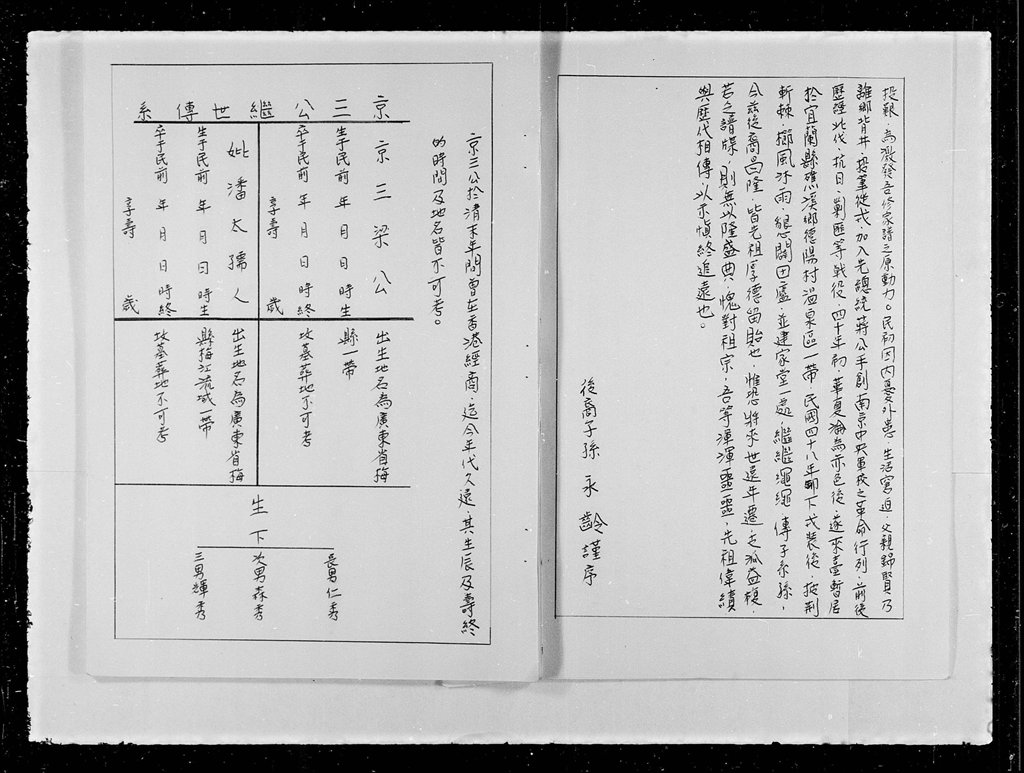 投艱，為激發吾修家譜之原動力。民初因內憂外患，生活窘迫，父親歸賢乃
離鄉背井，投筆從戎，加入先總統蔣公手創南京中央軍校之革命行列，前後
歷經北伐、抗日、剿匪等戰役，四十年初，華夏淪為赤色後，遂來臺暫居
於宜蘭縣礁溪鄉德陽村溫泉區一帶，民國四十八年卸下戎裝後，披荊
斬棘，櫛風沐雨，懇闢田廬，並建家堂一處，繼繼繩繩，傳子系孫，
今茲後裔昌隆，皆先祖厚德留貽也，惟恐將來世遠年遷，
若乏譜牒，則無以隆盛典，愧對祖宗，吾等渾渾噩噩，先祖偉績
與歷代相傳，以示慎終追遠也。
後裔子孫 永齡謹序
京三公於清末年間曾在香港經商，迄今年代久遠，其生辰及壽終
的時間及地名皆不可考。
京三公繼世傳系
京三梁公
生于民前 年 月 日 時生
卒于民前 年 月 日 時終
享壽 歲
出生地名為廣東省梅
縣一帶
墳墓葬地不可考
妣潘太孺人
生于民前 年 月 日 時生
卒于民前 年 月 日 時終
享壽 歲
出生地名為廣東省梅
縣梅江流域一帶
墳墓葬地不可考
生下
長男仁秀
次男森秀
三男輝秀